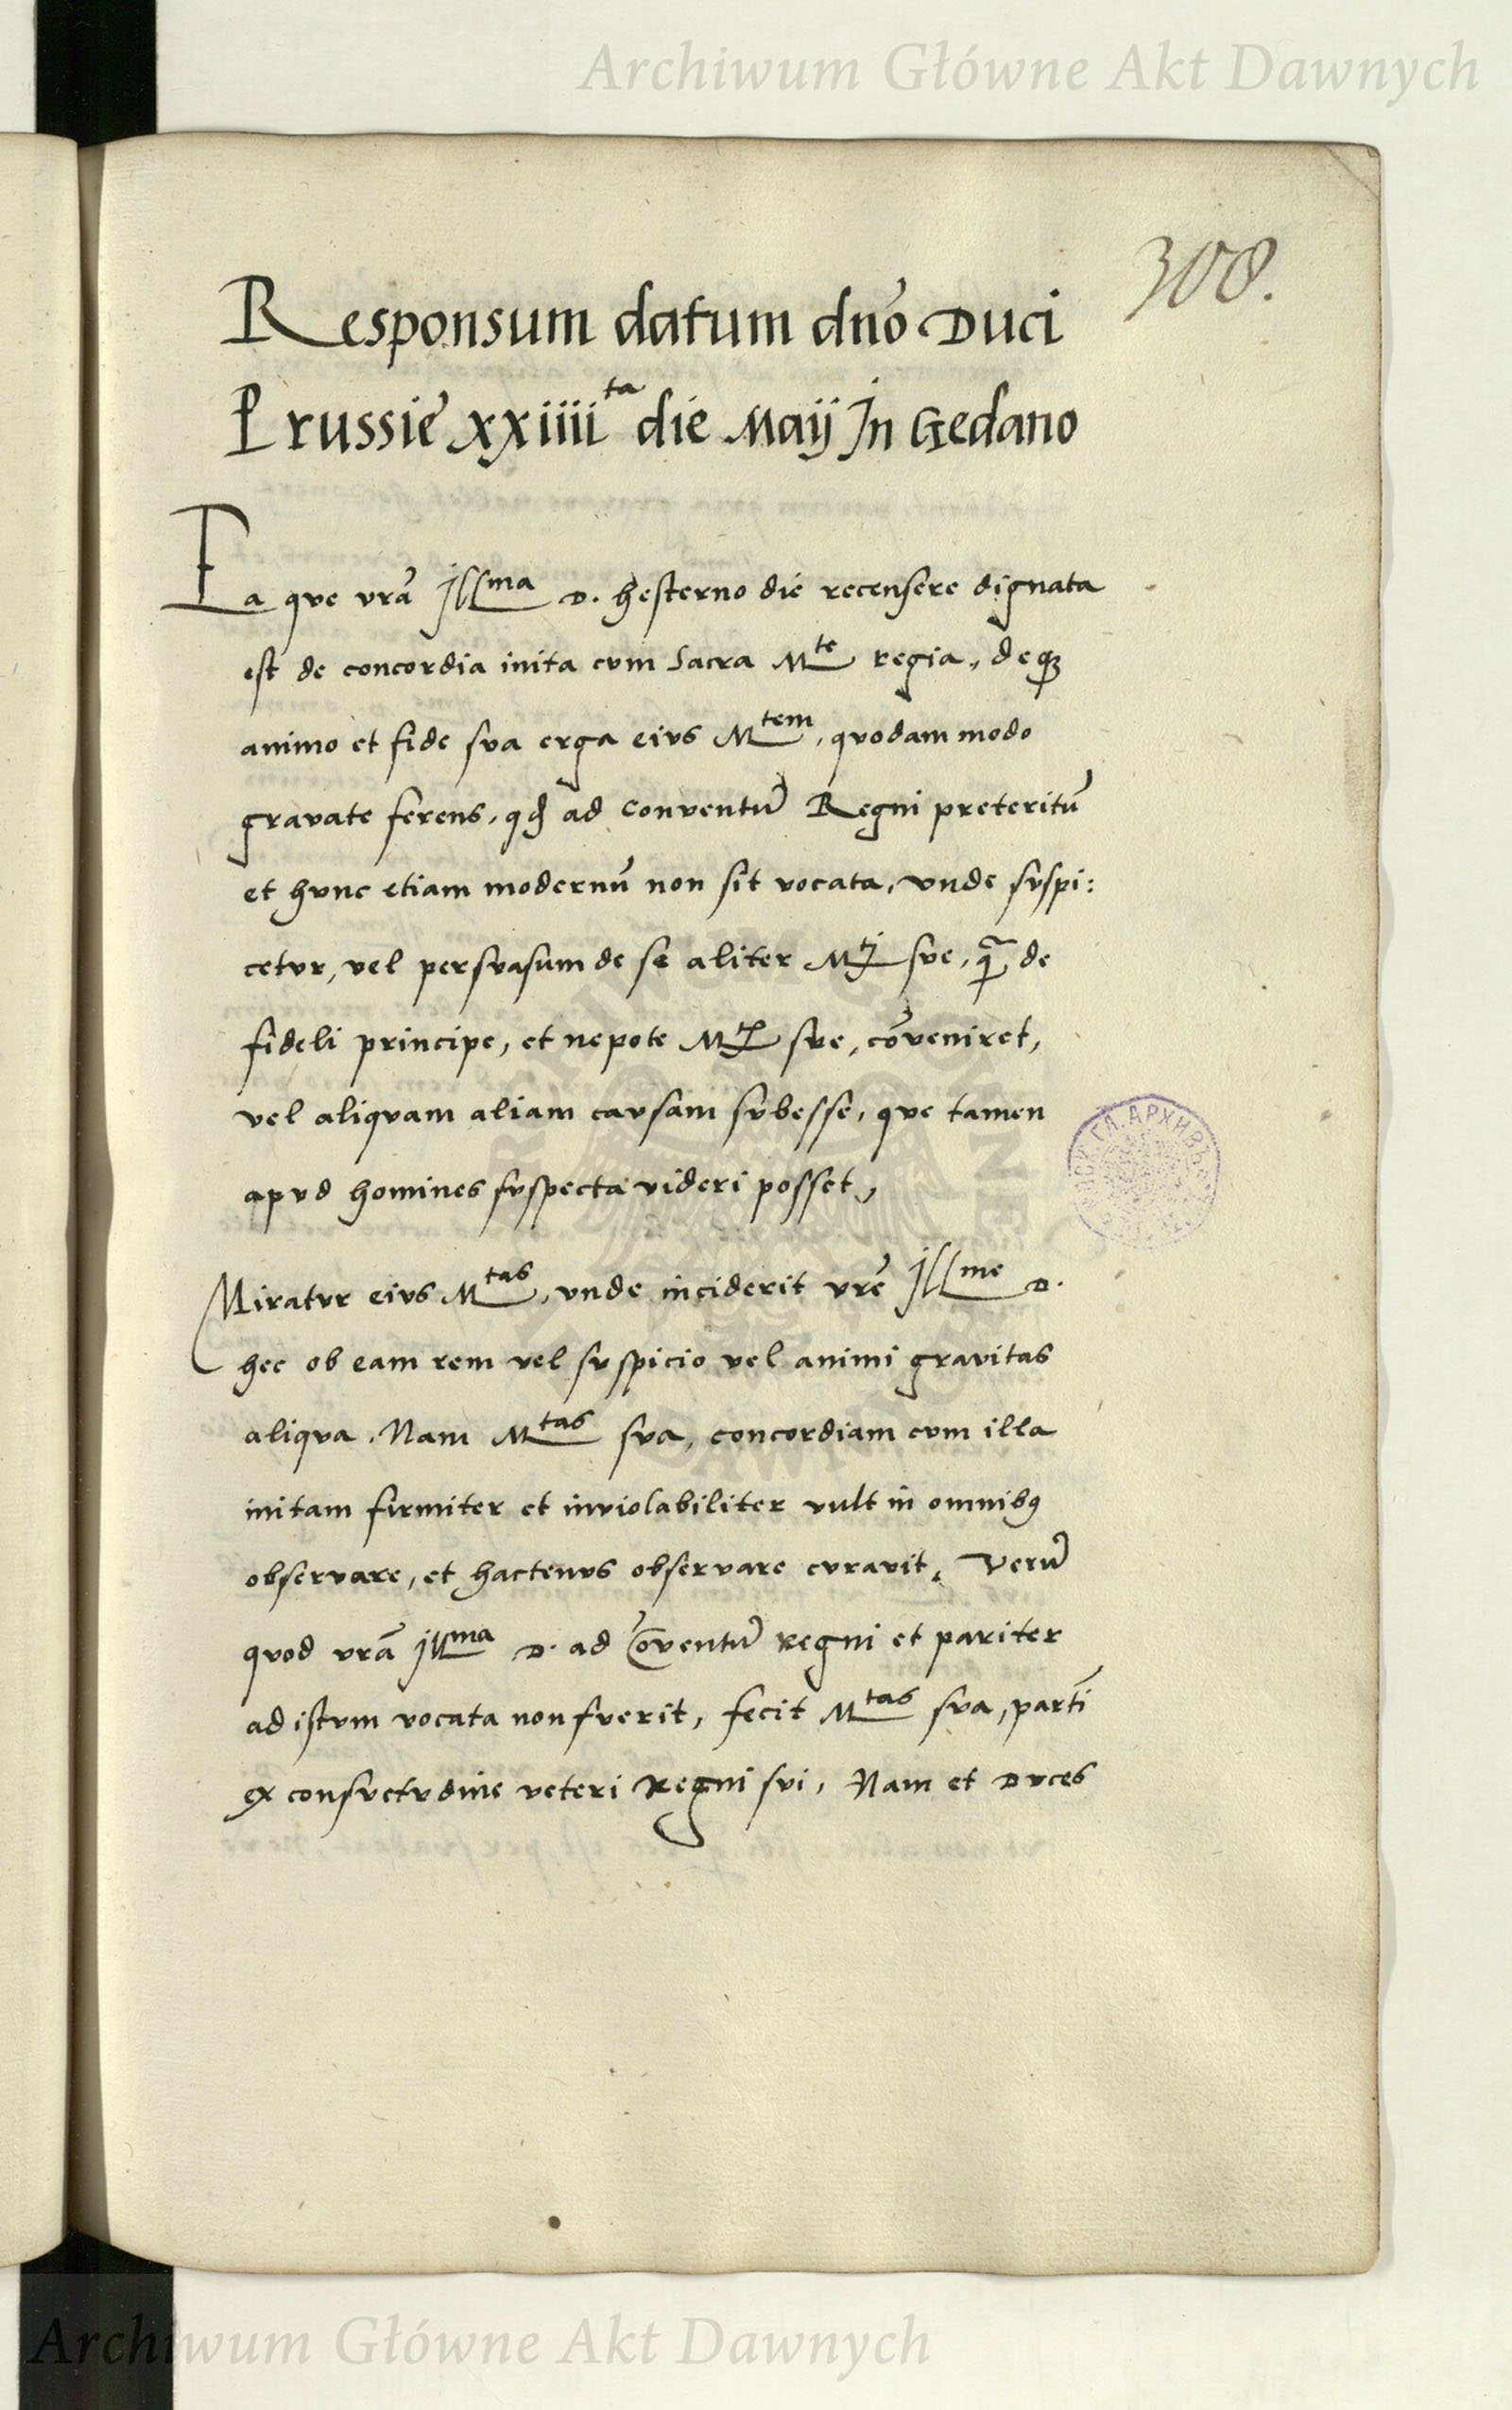 Archiwum Główne Akt Dawnych
308.
Responsum datum dnõ Duci
Prussie xxiiii^ta die Maij Jn Gedano
Ea que vrã Jll^ma D. hesterno die recensere dignata
est de concordia inita cum sacra M^te regia, deq3
animo et fide sua erga eius M^tem, quodam modo
gravate ferens, qđ ad conventũ Regni preteritũ
et hunc etiam modernũ non sit vocata, unde suspi:
cetur, vel persuasum de se aliter M^ti sue, q̃ de
fideli principe, et nepote M^tis sue, cõveniret,
vel aliquam aliam causam subesse, que tamen
apud homines suspecta videri posset,
Miratur eius M^tas, unde inciderit vrẽ Jll^me D.
hec ob eam rem vel suspicio vel animi gravitas
aliqua. Nam M^tas sua, concordiam cum illa
initam firmiter et inviolabiliter vult in omnib9
observare, et hactenus observare curavit, Verũ
quod vrã Jll^ma D. ad cõventũ Regni et pariter
ad istum vocata non fuerit, fecit M^tas sua, partĩ
ex consuetudine veteri Regni sui, Nam et Duces
Archiwum Główne Akt Dawnych